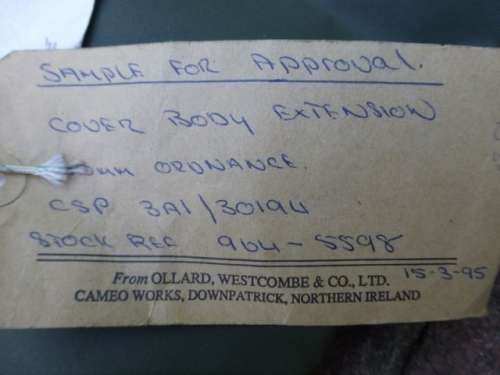 SAMPLE FOR APPROVAL.
COVER BODY EXTENSION
ORDNANCE.
CSP 3A1/30194
STOCK REC 904-5598
15-3-95
From OLLARD, WESTCOMBE & CO., LTD.
CAMEO WORKS, DOWNPATRICK, NORTHERN IRELAND